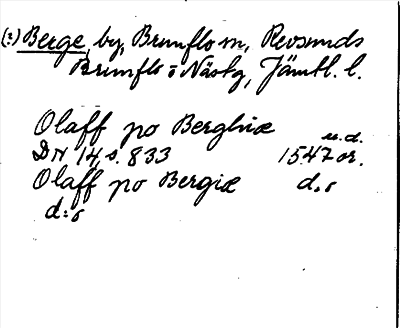 (?) Berge, by, Brunflo sn, Revsunds
Brunflo o Näsky, Jämtl. l.
Olaff po Berghiæ u.d.
DN 14, s. 833 1547 or.
Olaff po Bergiæ d. o
d: o